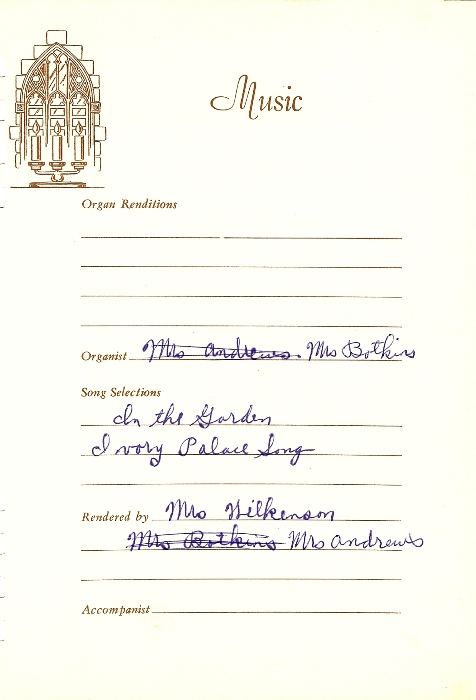 Music
Organ Renditions
Organist Mrs Andrews. Mrs Botkins
Song Selections
In the Garden
Ivory Palace Song
Rendered by Mrs Wilkenson
Mrs Botkins Mrs Andrews
Accompanist